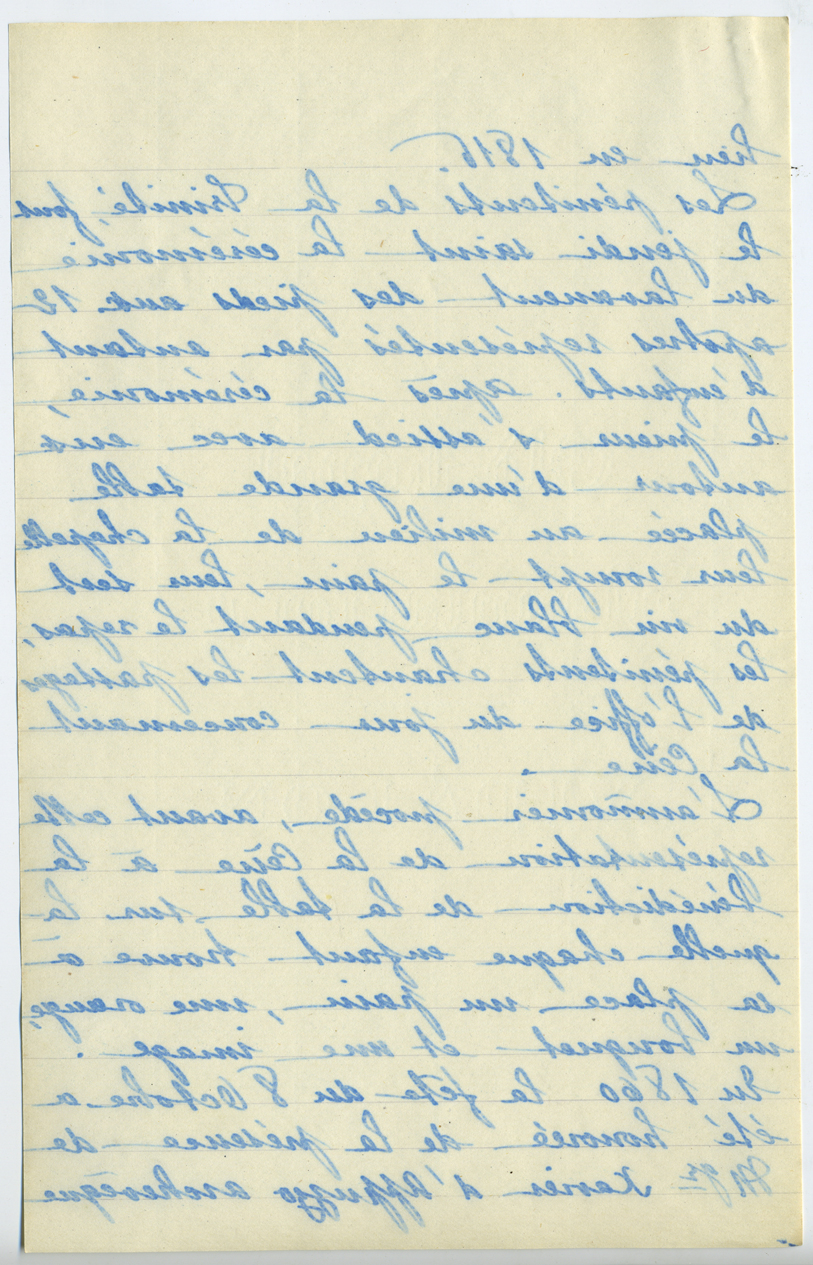 lieu en 1816.
Les pénitents de la Trinité, font
le jeudi saint la cérémonie
du lavement des pieds aux 12
apôtres représentés par autant
d'enfants. Après la cérémonie,
le prieur s'assied avec eux
autour d'une grande table
placée au milieu de la chapelle
leur rompt le pain, leur sert
du vin blanc pendant le repas,
les pénitents chantent les passages
de l'office du jour concernant
la Cène.
L'aumônier procède, avant cette
représentation de la Cène à la
bénédiction de la table sur la
quelle chaque enfant trouve à
sa place un pain, une orange,
un bouquet et une image.
En 1860 la fête du 8 Octobre a
été honorée de la présence de
Mgr Xavier d'Appuzzo archevêque